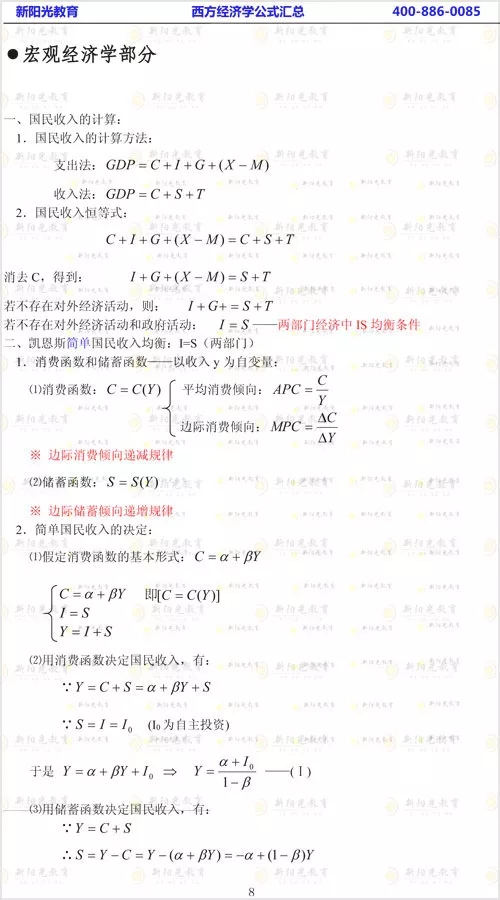 新阳光教育 西方经济学公式汇总 400-886-0085
●宏观经济学部分
一、国民收入的计算：
1．国民收入的计算方法：
支出法：GDP = C + I + G + (X − M)
收入法：GDP = C + S + T
2．国民收入恒等式：
C + I + G + (X − M) = C + S + T
消去 C，得到： I + G + (X − M) = S + T
若不存在对外经济活动，则： I + G+ = S + T
若不存在对外经济活动和政府活动： I = S ——两部门经济中 IS 均衡条件
二、凯恩斯简单国民收入均衡：I=S（两部门）
1．消费函数和储蓄函数——以收入 y 为自变量：
⑴消费函数：C = C(Y) { 平均消费倾向：APC = C/Y
边际消费倾向：MPC = ΔC/ΔY
※ 边际消费倾向递减规律
⑵储蓄函数：S = S(Y)
※ 边际储蓄倾向递增规律
2．简单国民收入的决定：
⑴假定消费函数的基本形式：C = α + βY
{ C = α + βY 即[C = C(Y)]
I = S
Y = I + S
⑵用消费函数决定国民收入，有：
∵ Y = C + S = α + βY + S
∵ S = I = I₀ (I₀ 为自主投资)
于是 Y = α + βY + I₀ ⇒ Y = (α + I₀)/(1 − β) ——(Ⅰ)
——⑶用储蓄函数决定国民收入，有：
∵ Y = C + S
∴ S = Y − C = Y − (α + βY) = −α + (1 − β)Y
8